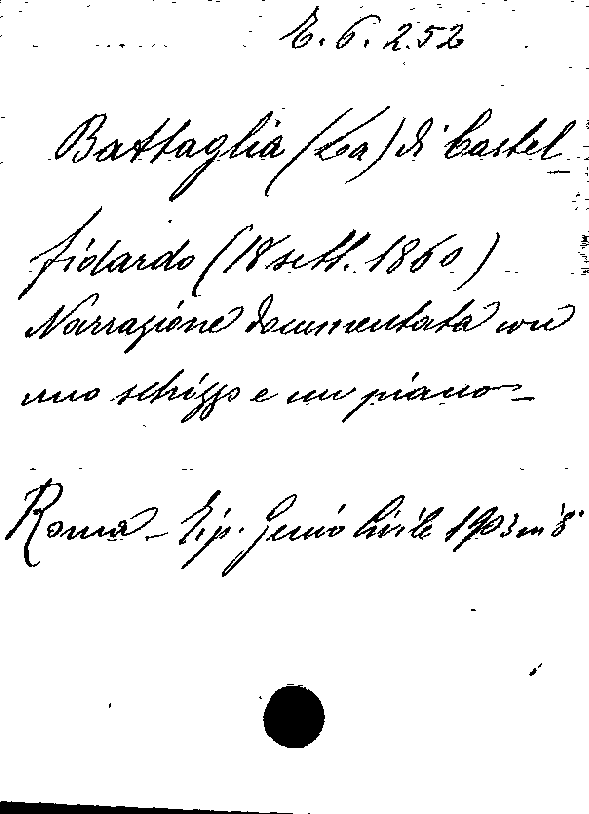 E. 6. 252
Battaglia (La) di Castel
fidardo (18 sett. 1860)
Narrazione documentata con
uno schizzo e un piano -
Roma - Tip. Genio Civile 1903 in 8°